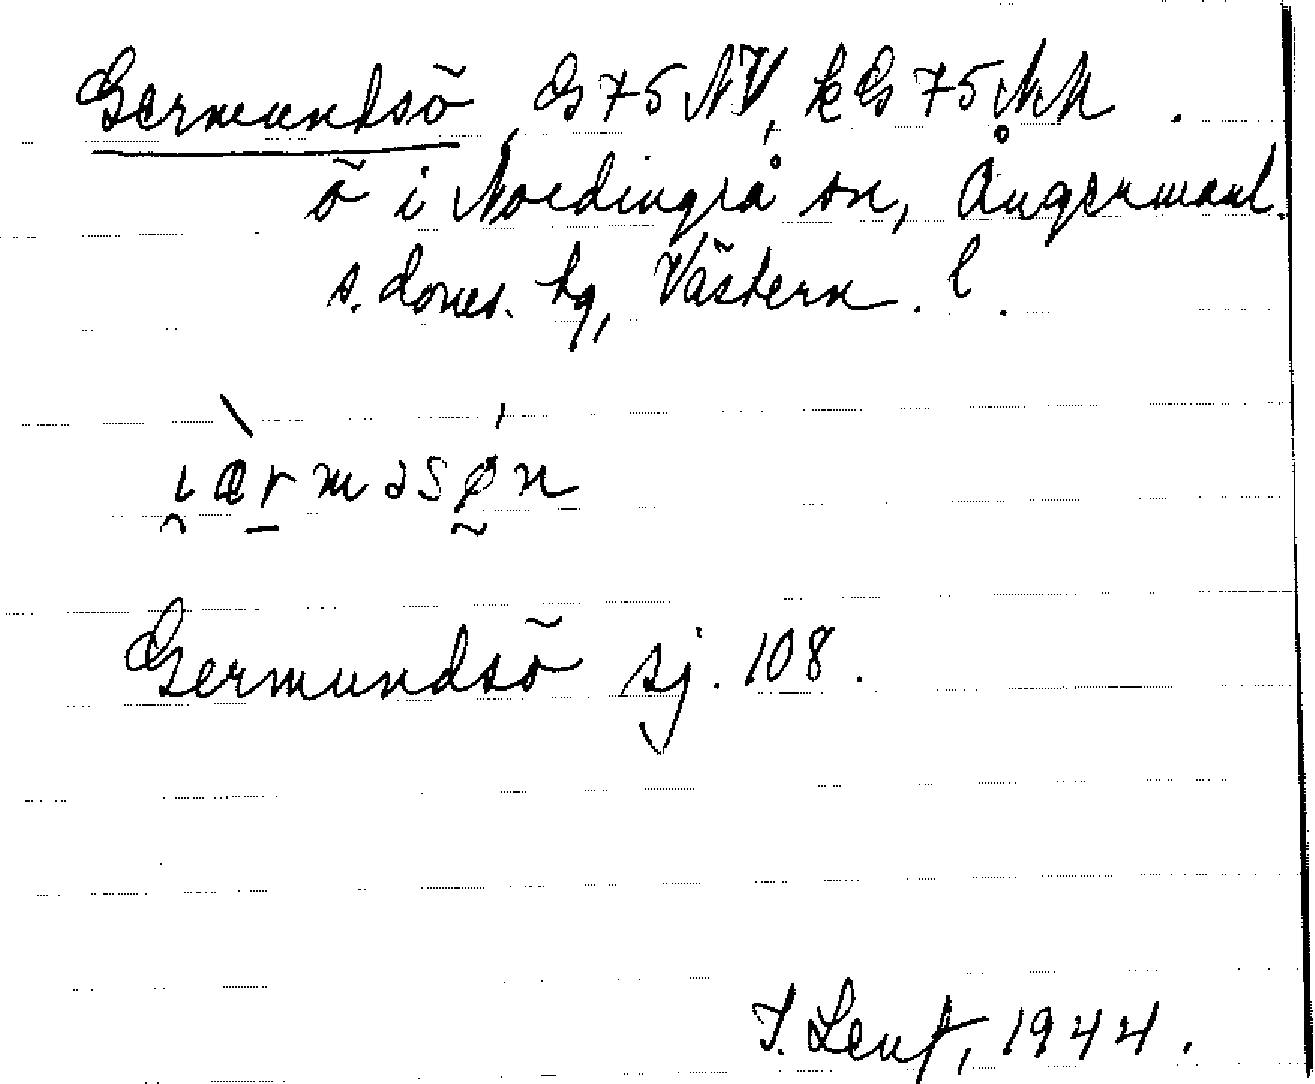 Germundsö, G 75 NV, kG 75 NN.
ö i Nordingrå sn, Ångermanl.
s. doms. tg, Västern. l.
i̯æ̀r̠məsǿ̰n
Germundsö sj. 108.
1944.